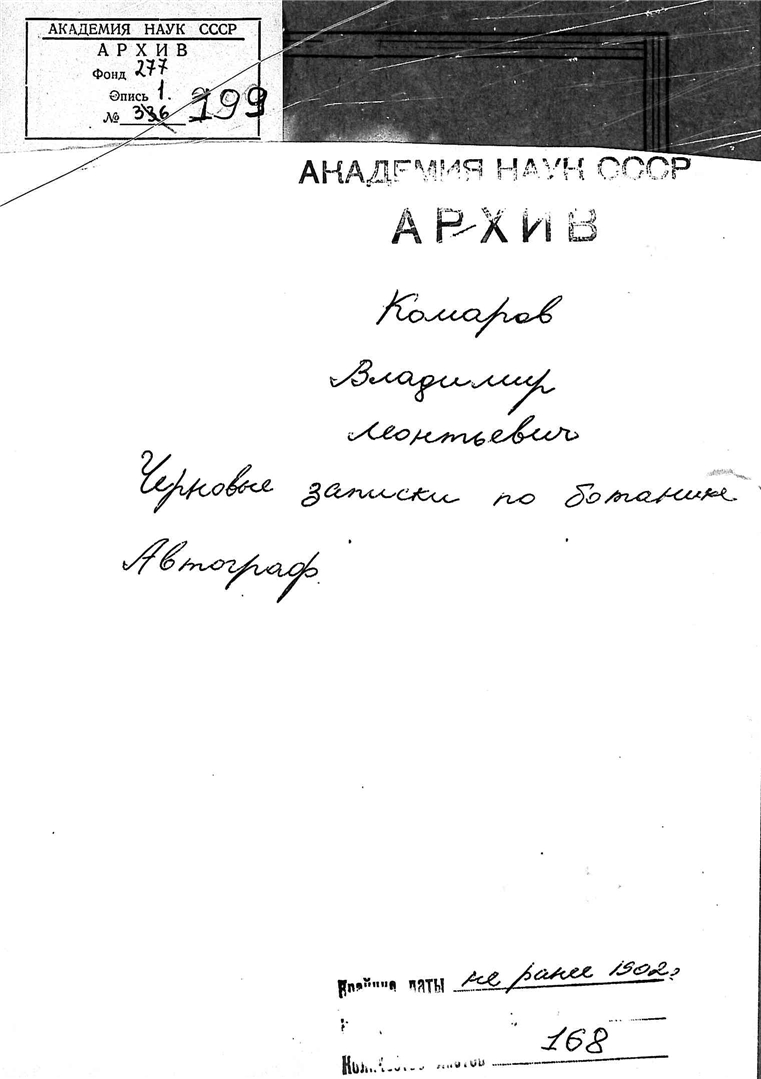 АКАДЕМИЯ НАУК СССР
АРХИВ
Фонд 277
Опись 1.
№ 336 199
АКАДЕМИЯ НАУК СССР
АРХИВ
Комаров
Владимир
Леонтьевич
Черновые записки по ботанике
Автограф
Крайние даты не ранее 1902г
Количество листов 168